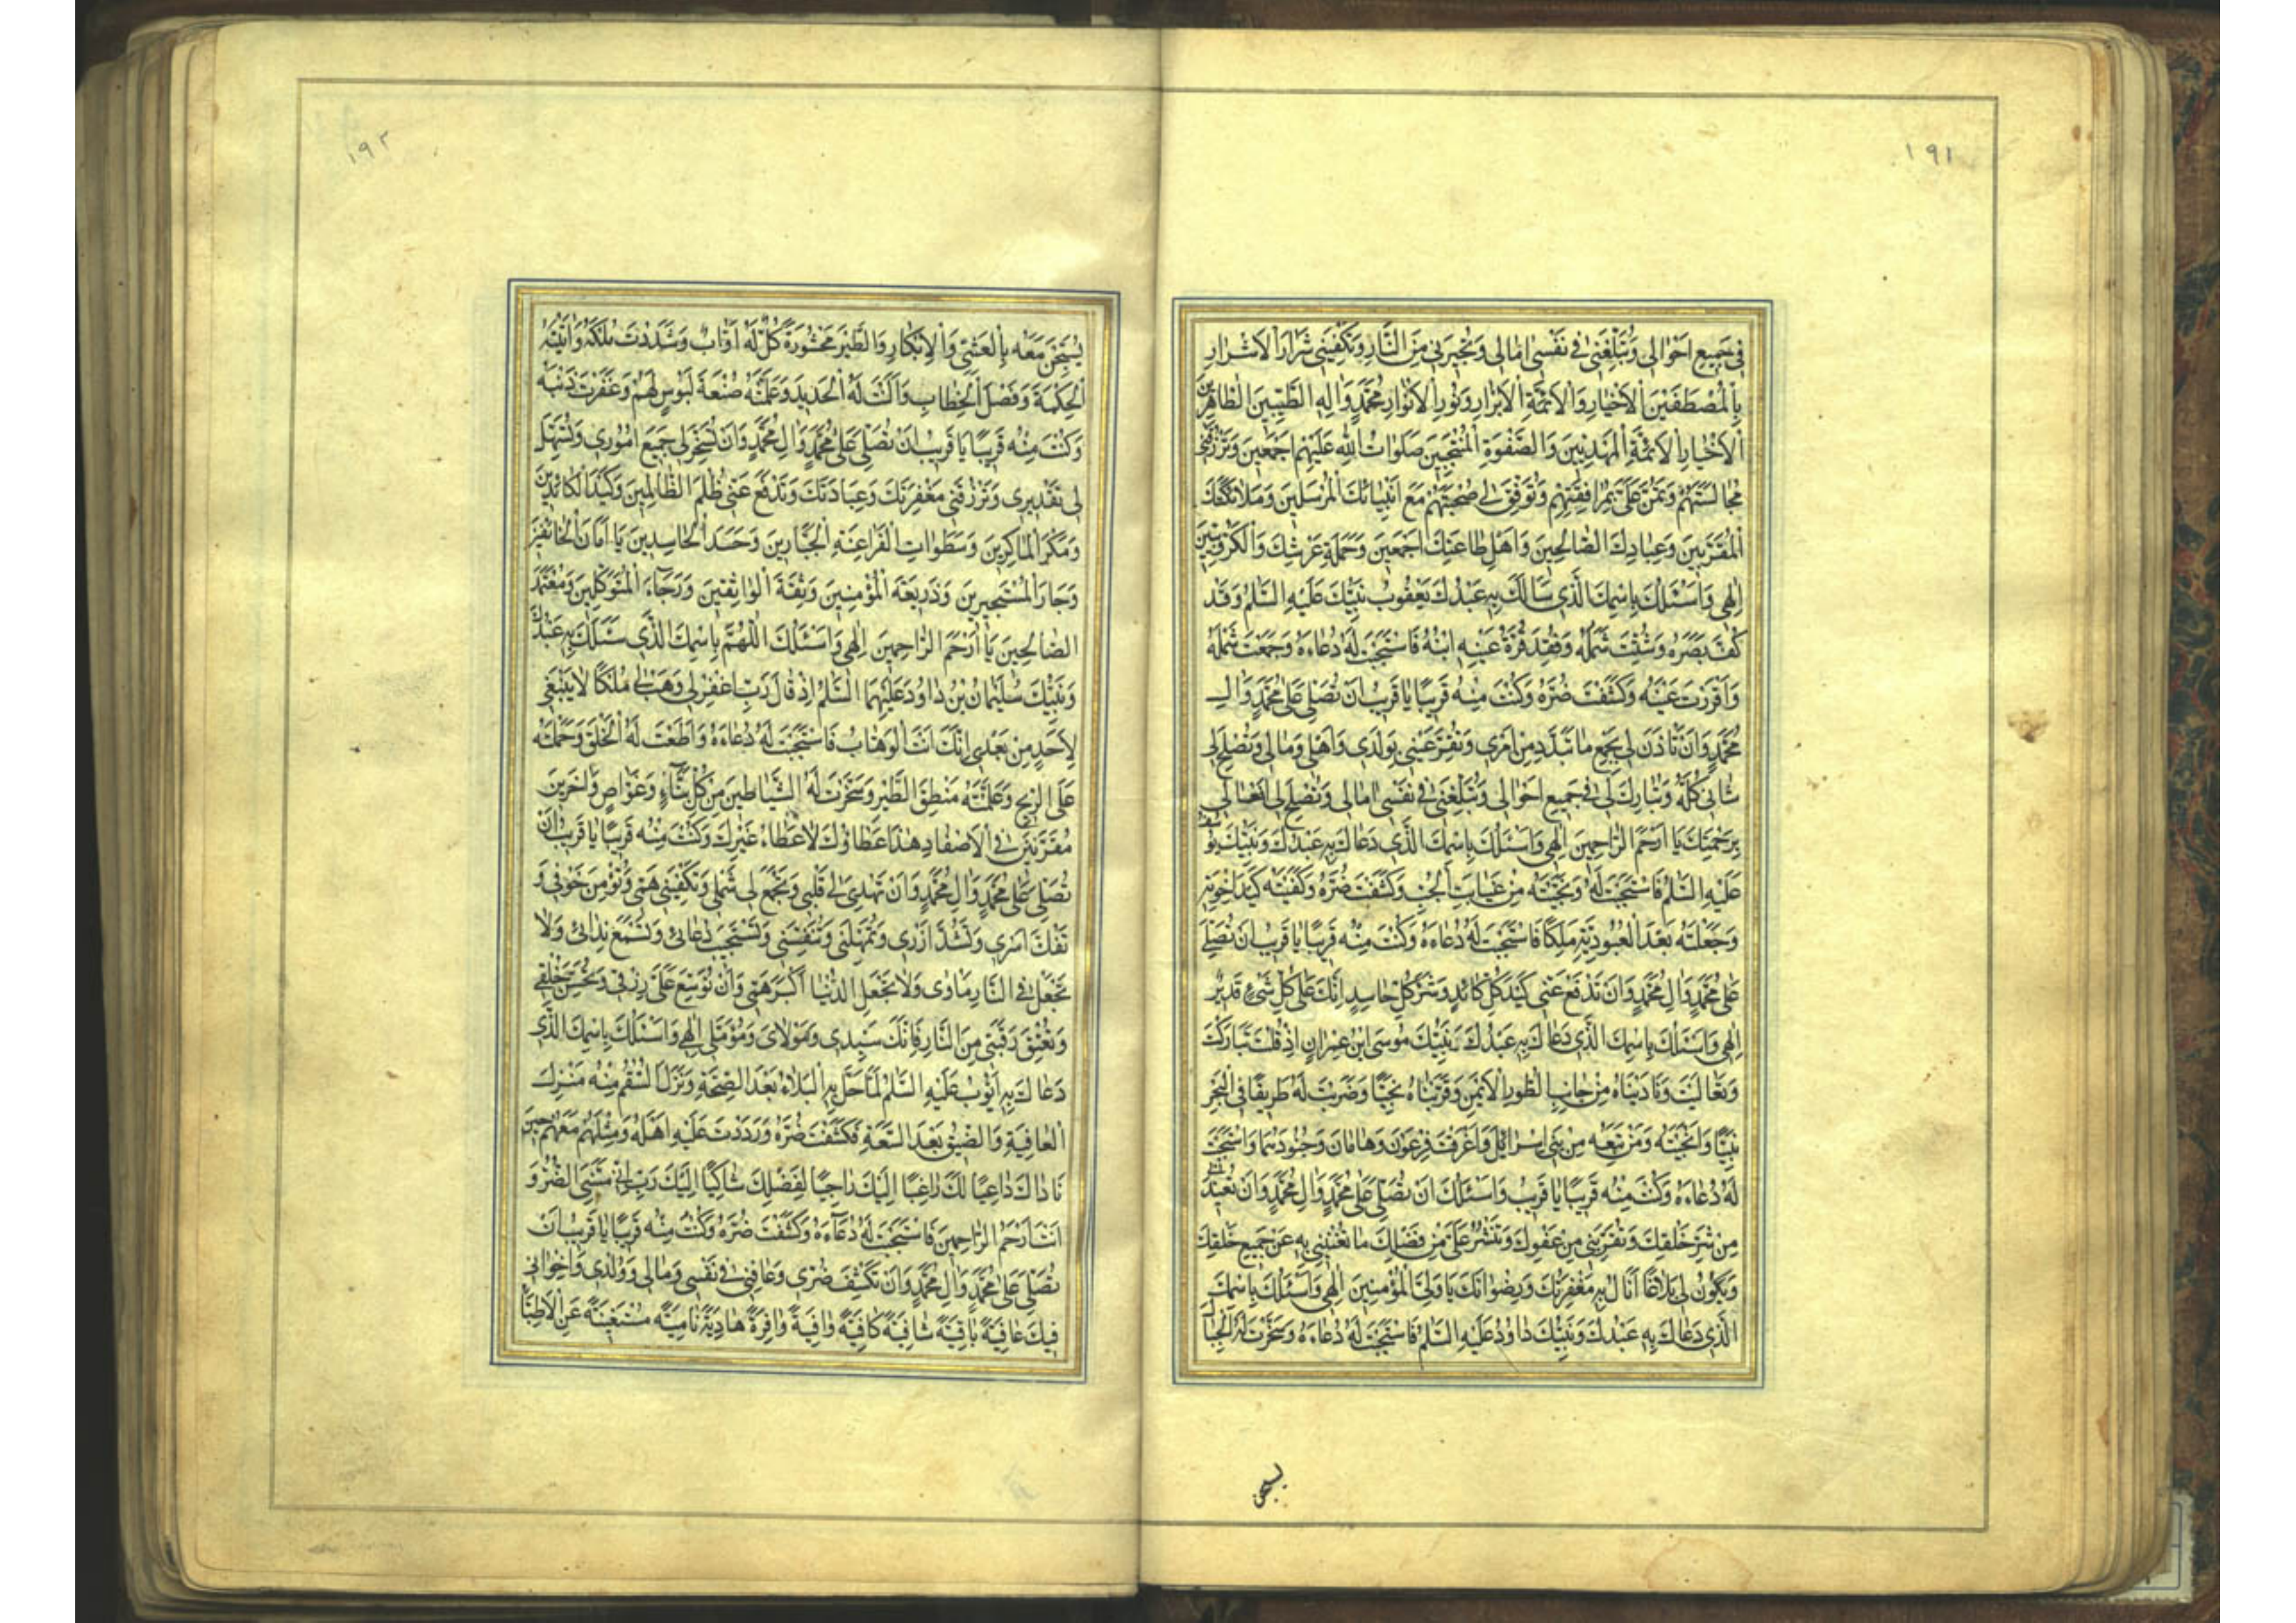 ١٩١
في جَميعِ اَحْوالي وَتُبَلِّغَني في نَفْسي امالي وَتُجيرَني مِنَ النّارِ وَتَكْفِيَني شَرَّ الْاَشْرارِ
بِالْمُصْطَفَيْنَ الْاَخْيارِ وَالْاَئِمَّةِ الْاَبْرارِ وَنُورِ الْاَنْوارِ مُحَمَّدٍ وَالِهِ الطَّيِّبينَ الطّاهِرينَ
الْاَخْيارِ الْاَئِمَّةِ الْمَهْدِيّينَ وَالصَّفْوَةِ الْمُنْتَجَبينَ صَلَواتُ اللهِ عَلَيْهِمْ اَجْمَعينَ وَتَرْزُقَني
مُجالَسَتَهُمْ وَتَمُنَّ عَلَيَّ بِمُرافَقَتِهِمْ وَتُوَفِّقَ لي صُحْبَتَهُمْ مَعَ اَنْبِيائِكَ الْمُرْسَلينَ وَمَلائِكَتِكَ
الْمُقَرَّبينَ وَعِبادِكَ الصّالِحينَ وَاَهْلِ طاعَتِكَ اَجْمَعينَ وَحَمَلَةِ عَرْشِكَ وَالْكَرُّوبِيّينَ
اِلهي وَاَسْئَلُكَ بِاسْمِكَ الَّذي سَاَلَكَ بِهِ عَبْدُكَ يَعْقُوبُ نَبِيُّكَ عَلَيْهِ السَّلمُ وَقَدْ
كُفَّ بَصَرُهُ وَشُتِّتَ شَمْلُهُ وَفُقِدَ قُرَّةُ عَيْنِهِ ابْنُهُ فَاسْتَجَبْتَ لَهُ دُعاءَهُ وَجَمَعْتَ شَمْلَهُ
وَاَقْرَرْتَ عَيْنَهُ وَكَشَفْتَ ضُرَّهُ وَكُنْتَ مِنْهُ قَريبًا يا قَريبُ اَنْ تُصَلِّيَ عَلى مُحَمَّدٍ وَالِ
مُحَمَّدٍ وَاَنْ تَاْذَنَ لي بِجَمْعِ ما تَبَدَّدَ مِنْ اَمْري وَتُقِرَّ عَيْني بِوَلَدي وَاَهْلي وَمالي وَتُصْلِحَ لي
شَاْني كُلَّهُ وَتُبارِكَ لي في جَميعِ اَحْوالي وَتُبَلِّغَني في نَفْسي امالي وَتُصْلِحَ لي اَفْعالي
بِرَحْمَتِكَ يا اَرْحَمَ الرّاحِمينَ اِلهي وَاَسْئَلُكَ بِاسْمِكَ الَّذي دَعاكَ بِهِ عَبْدُكَ وَنَبِيُّكَ يُوسُفُ
عَلَيْهِ السَّلمُ فَاسْتَجَبْتَ لَهُ وَنَجَّيْتَهُ مِنْ غَيابَتِ الْجُبِّ وَكَشَفْتَ ضُرَّهُ وَكَفَيْتَهُ كَيْدَ اِخْوَتِهِ
وَجَعَلْتَهُ بَعْدَ الْعُبُودِيَّةِ مَلِكًا فَاسْتَجَبْتَ لَهُ دُعاءَهُ وَكُنْتَ مِنْهُ قَريبًا يا قَريبُ اَنْ تُصَلِّيَ
عَلى مُحَمَّدٍ وَالِ مُحَمَّدٍ وَاَنْ تَدْفَعَ عَنّي كَيْدَ كُلِّ كائِدٍ وَشَرَّ كُلِّ حاسِدٍ اِنَّكَ عَلى كُلِّ شَيْءٍ قَديرٌ
اِلهي وَاَسْئَلُكَ بِاسْمِكَ الَّذي دَعاكَ بِهِ عَبْدُكَ وَنَبِيُّكَ مُوسَى ابْنُ عِمْرانَ اِذْ قُلْتَ تَبارَكْتَ
وَتَعالَيْتَ وَنادَيْناهُ مِنْ جانِبِ الطُّورِ الْاَيْمَنِ وَقَرَّبْناهُ نَجِيًّا وَضَرَبْتَ لَهُ طَريقًا فِي الْبَحْرِ
وَاَنْجَيْتَهُ وَمَنْ تَبِعَهُ مِنْ بَني اِسْرائيلَ وَاَغْرَقْتَ فِرْعَوْنَ وَهامانَ وَجُنُودَهُما وَاسْتَجَبْتَ
لَهُ دُعاءَهُ وَكُنْتَ مِنْهُ قَريبًا يا قَريبُ وَاَسْئَلُكَ اَنْ تُصَلِّيَ عَلى مُحَمَّدٍ وَالِ مُحَمَّدٍ وَاَنْ تُعيذَني
مِنْ شَرِّ خَلْقِكَ وَتُقَرِّبَني مِنْ عَفْوِكَ وَتَنْشُرَ عَلَيَّ مِنْ فَضْلِكَ ما تُغْنيني بِهِ عَنْ جَميعِ خَلْقِكَ
وَيَكُونُ لي بَلاغًا اَنالُ بِهِ مَغْفِرَتَكَ وَرِضْوانَكَ يا وَلِيَّ الْمُؤْمِنينَ اِلهي وَاَسْئَلُكَ بِاسْمِكَ
الَّذي دَعاكَ بِهِ عَبْدُكَ وَنَبِيُّكَ داوُدُ عَلَيْهِ السَّلمُ فَاسْتَجَبْتَ لَهُ دُعاءَهُ وَسَخَّرْتَ لَهُ الْجِبالَ
يسبحن
١٩٢
يُسَبِّحْنَ مَعَهُ بِالْعَشِيِّ وَالْاِبْكارِ وَالطَّيْرَ مَحْشُورَةً كُلٌّ لَهُ اَوّابٌ وَشَدَدْتَ مُلْكَهُ وَاتَيْتَهُ
الْحِكْمَةَ وَفَصْلَ الْخِطابِ وَاَلَنْتَ لَهُ الْحَديدَ وَعَلَّمْتَهُ صَنْعَةَ لَبُوسٍ لَهُمْ وَغَفَرْتَ ذَنْبَهُ
وَكُنْتَ مِنْهُ قَريبًا يا قَريبُ اَنْ تُصَلِّيَ عَلى مُحَمَّدٍ وَالِ مُحَمَّدٍ وَاَنْ تُسَخِّرَ لي جَميعَ اُمُوري وَتُسَهِّلَ
لي تَقْديري وَتَرْزُقَني مَغْفِرَتَكَ وَعِبادَتَكَ وَتَدْفَعَ عَنّي ظُلْمَ الظّالِمينَ وَكَيْدَ الْكائِدينَ
وَمَكْرَ الْماكِرينَ وَسَطَواتِ الْفَراعِنَةِ الْجَبّارينَ وَحَسَدَ الْحاسِدينَ يا اَمانَ الْخائِفينَ
وَجارَ الْمُسْتَجيرينَ وَذَريعَةَ الْمُؤْمِنينَ وَثِقَةَ الْواثِقينَ وَرَجاءَ الْمُتَوَكِّلينَ وَمُعْتَمَدَ
الصّالِحينَ يا اَرْحَمَ الرّاحِمينَ اِلهي وَاَسْئَلُكَ اللّهُمَّ بِاسْمِكَ الَّذي سَئَلَكَ بِهِ عَبْدُكَ
وَنَبِيُّكَ سُلَيْمانُ بْنُ داوُدَ عَلَيْهِمَا السَّلمُ اِذْ قالَ رَبِّ اغْفِرْ لي وَهَبْ لي مُلْكًا لا يَنْبَغي
لِاَحَدٍ مِنْ بَعْدي اِنَّكَ اَنْتَ الْوَهّابُ فَاسْتَجَبْتَ لَهُ دُعاءَهُ وَاَطَعْتَ لَهُ الْخَلْقَ وَحَمَلْتَهُ
عَلَى الرّيحِ وَعَلَّمْتَهُ مَنْطِقَ الطَّيْرِ وَسَخَّرْتَ لَهُ الشَّياطينَ مِنْ كُلِّ بَنّاءٍ وَغَوّاصٍ وَاخَرينَ
مُقَرَّنينَ فِي الْاَصْفادِ هذا عَطاؤُكَ لا عَطاءُ غَيْرِكَ وَكُنْتَ مِنْهُ قَريبًا يا قَريبُ اَنْ
تُصَلِّيَ عَلى مُحَمَّدٍ وَالِ مُحَمَّدٍ وَاَنْ تَهْدِيَ لي قَلْبي وَتَجْمَعَ لي شَمْلي وَتَكْفِيَني هَمّي وَتُؤْمِنَ خَوْفي وَ
تَفُكَّ اَسْري وَتَشُدَّ اَزْري وَتُمْهِلَني وَتُنَفِّسَني وَتَسْتَجيبَ دُعائي وَتَسْمَعَ نِدائي وَلا
تَجْعَلَ فِي النّارِ مَاْوايَ وَلا تَجْعَلِ الدُّنْيا اَكْبَرَ هَمّي وَاَنْ تُوَسِّعَ عَلَيَّ رِزْقي وَتُحَسِّنَ خَلْقي
وَتُعْتِقَ رَقَبَتي مِنَ النّارِ فَاِنَّكَ سَيِّدي وَمَوْلايَ وَمُؤَمَّلي اِلهي وَاَسْئَلُكَ بِاسْمِكَ الَّذي
دَعاكَ بِهِ اَيُّوبُ عَلَيْهِ السَّلمُ لَمّا حَلَّ بِهِ الْبَلاءُ بَعْدَ الصِّحَّةِ وَنَزَلَ السُّقْمُ مِنْهُ مَنْزِلَ
الْعافِيَةِ وَالضّيقُ بَعْدَ السَّعَةِ فَكَشَفْتَ ضُرَّهُ وَرَدَدْتَ عَلَيْهِ اَهْلَهُ وَمِثْلَهُمْ مَعَهُمْ حينَ
ناداكَ داعِيًا لَكَ راغِبًا اِلَيْكَ راجِيًا لِفَضْلِكَ شاكِيًا اِلَيْكَ رَبِّ اِنّي مَسَّنِيَ الضُّرُّ وَ
اَنْتَ اَرْحَمُ الرّاحِمينَ فَاسْتَجَبْتَ لَهُ دُعاءَهُ وَكَشَفْتَ ضُرَّهُ وَكُنْتَ مِنْهُ قَريبًا يا قَريبُ اَنْ
تُصَلِّيَ عَلى مُحَمَّدٍ وَالِ مُحَمَّدٍ وَاَنْ تَكْشِفَ ضُرّي وَعافِني في نَفْسي وَمالي وَوُلْدي وَاِخْواني
فيكَ عافِيَةً باقِيَةً شافِيَةً كافِيَةً وافِيَةً وافِرَةً هادِيَةً نامِيَةً مُسْتَغْنِيَةً عَنِ الْاَطِبّاءِ